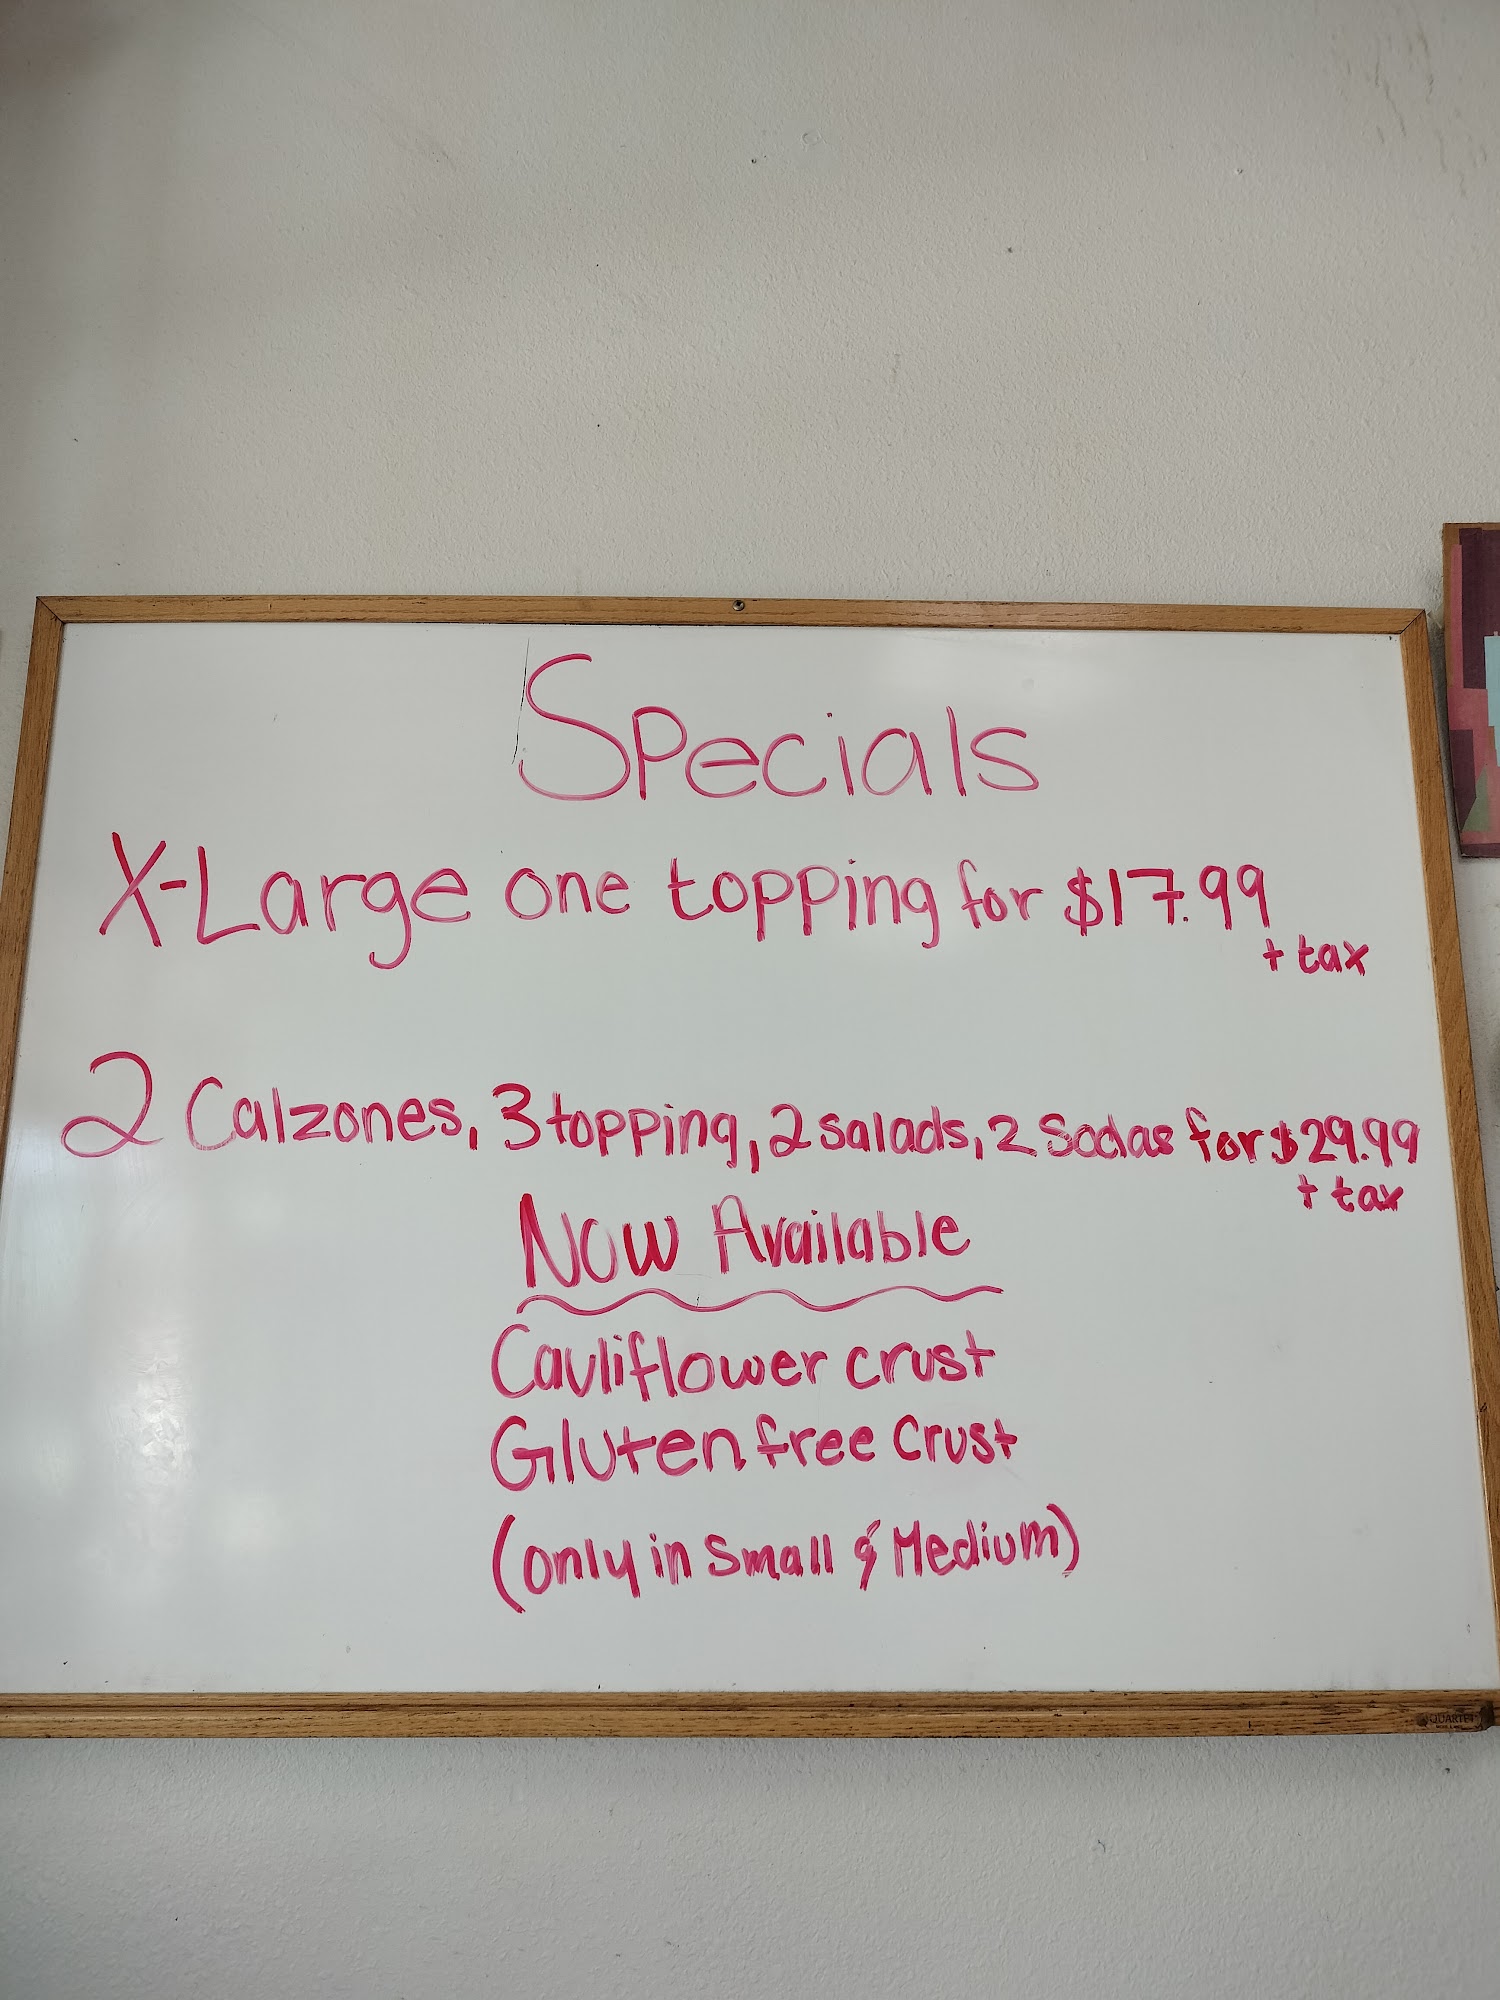 Specials
X-Large one topping for $17.99
+ tax
2 Calzones, 3 topping, 2 salads, 2 Sodas for $29.99
+ tax
Now Available
Cauliflower crust
Gluten free Crust
(only in Small & Medium)
QUARTET